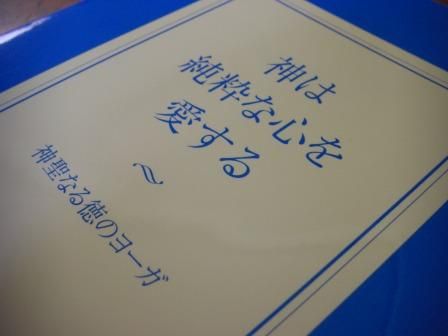 神は
純粋な心を
愛する
～
神聖なる徳のヨーガ